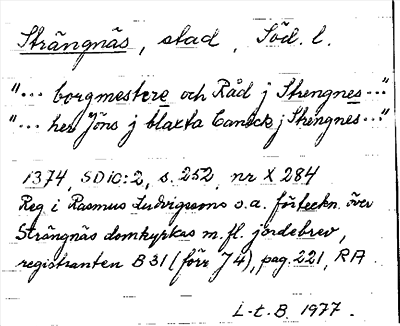 Strängnäs, stad, Söd. l.
"... borgmestere och Råd j Strengnes ..."
"... her Jöns j blaxta Canick j Strengnes ..."
1374, SD 10:2, s. 252, nr X 284
Reg i Rasmus Ludvigsons s.a. förteckn. över
Strängnäs domkyrkas m.fl. jordebrev,
registranten B 31 (förr J 4), pag. 221, RA.
L-t. B. 1977.